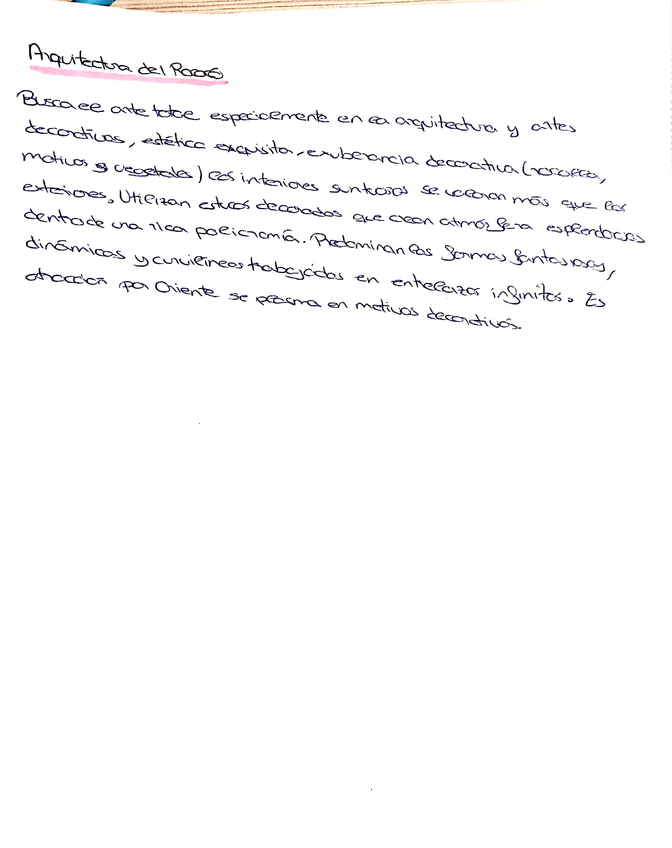 Arquitectura del Rococó
Busca el arte total especialmente en la arquitectura y artes
decorativas, estética exquisita, exuberancia decorativa (rocalla,
motivos vegetales) Los interiores suntuosos se valoran más que los
exteriores. Utilizan estucos decorados que crean atmósfera esplendorosa
dentro de una rica policromía. Predominan las formas fantasiosas,
dinámicas y curvilíneas trabajadas en entrelazos infinitos. Es
atracción por Oriente se plasma en motivos decorativos.